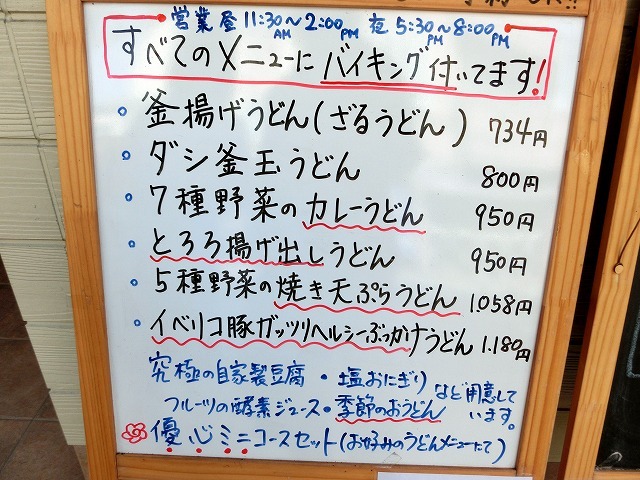 営業 昼 11:30AM〜2:00PM 夜 5:30PM〜8:00PM
すべてのメニューにバイキング付いてます!
・釜揚げうどん(ざるうどん) 734円
・ダシ釜玉うどん 800円
・7種野菜のカレーうどん 950円
・とろろ揚げ出しうどん 950円
・5種野菜の焼き天ぷらうどん 1.058円
・イベリコ豚ガッツリヘルシーぶっかけうどん 1.180円
究極の自家製豆腐・塩おにぎり
フルーツの酵素ジュース・季節のおうどん
など用意して
います。
優心ミニコースセット(お好みのうどんメニューにて)